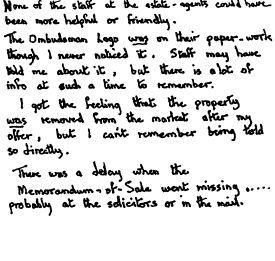 None of the staff at the estate-agents could have
been more helpful or friendly.
The Ombudsman logo was on their paper-work
though I never noticed it. Staff may have
told me about it, but there is alot of
info at such a time to remember.
I got the feeling that the property
was removed from the market after my
offer, but I can't remember being told
so directly.
There was a delay when the
Memorandum-of-Sale went missing .....
probably at the solicitors or in the mail.